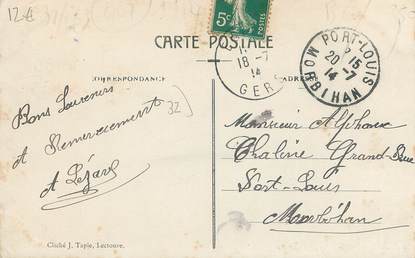 12€
5c
CARTE POSTALE
CORRESPONDANCE
ADRESSE
18-7
14
GERS
PORT-LOUIS
15
20-7
14
MORBIHAN
Bons Souvenirs
et Remerciement
32
A Lézard
Monsieur Alphonse
Chaline Grand-Rue
Port-Louis
Morbihan
Cliché J. Tapie, Lectoure.